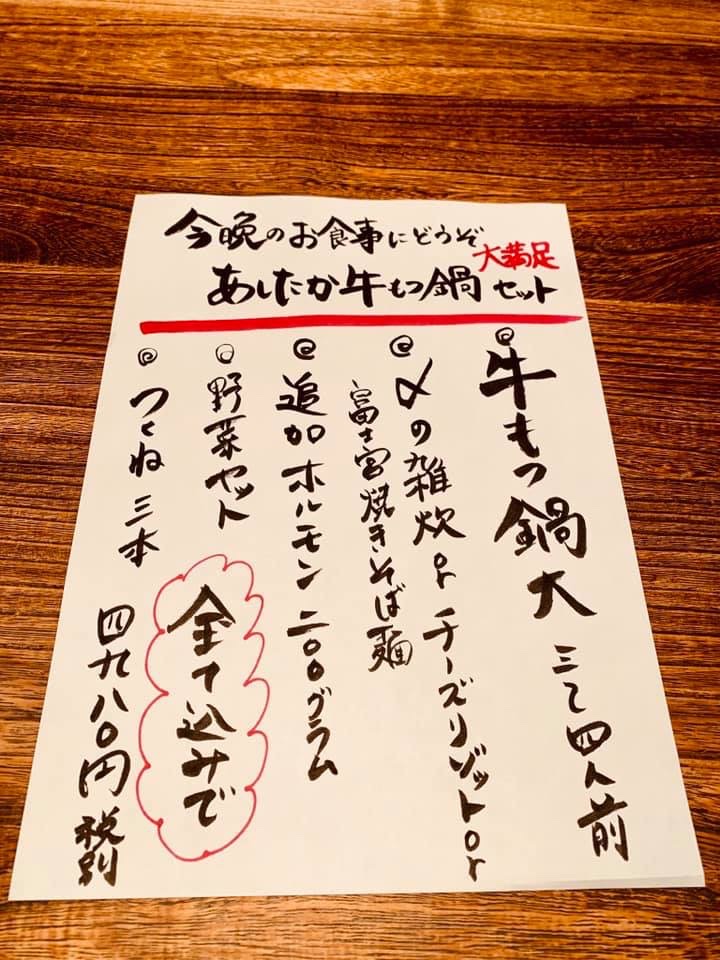 今晩のお食事にどうぞ
大満足
あしたか牛もつ鍋セット
牛もつ鍋大 三〜四人前
〆の雑炊orチーズリゾットor
富士宮焼きそば麺
追加ホルモン二〇〇グラム
野菜セット
つくね三本
全て込みで
四九八〇円税別